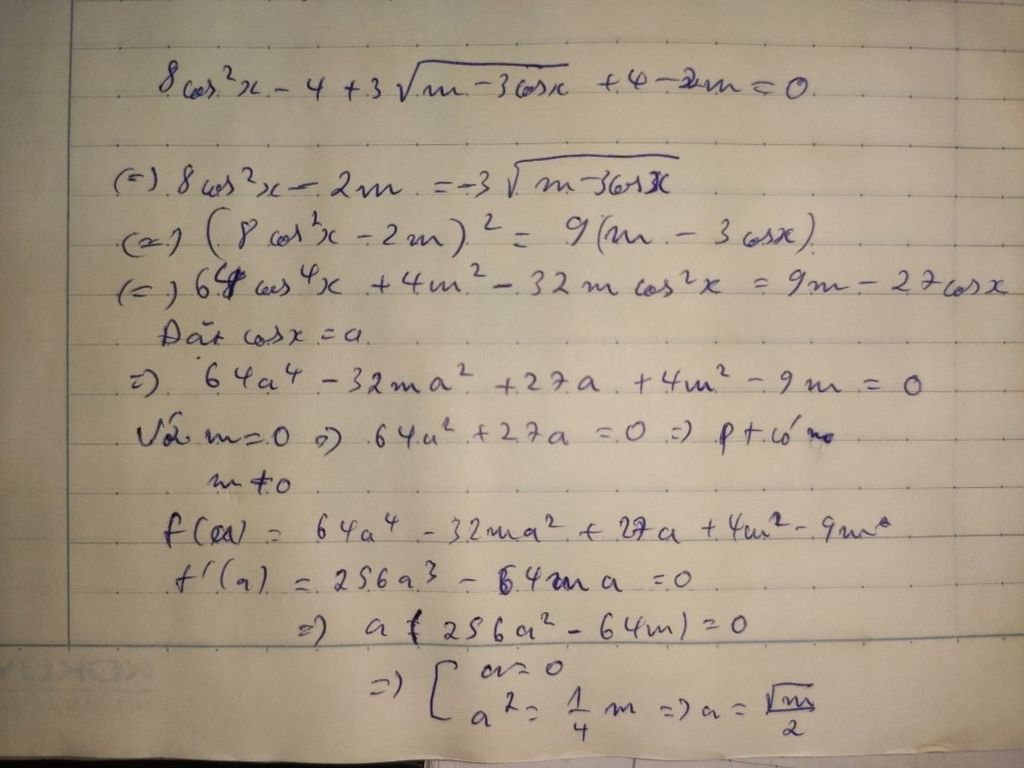 8cos²x - 4 + 3√(m - 3cosx) + 4 - 2m = 0
(=) 8cos²x - 2m = -3√(m-3cosx)
(=) (8cos²x - 2m)² = 9(m - 3cosx)
(=) 64cos⁴x + 4m² - 32mcos²x = 9m - 27cosx
Đặt cosx = a
=) 64a⁴ - 32ma² + 27a + 4m² - 9m = 0
Với m=0 =) 64a² + 27a = 0 =) pt có no
m≠0
f(a) = 64a⁴ - 32ma² + 27a + 4m² - 9m
f'(a) = 256a³ - 64ma = 0
=) a(256a² - 64m) = 0
=) [ a = 0
a² = 1/4 m =) a = √m/2